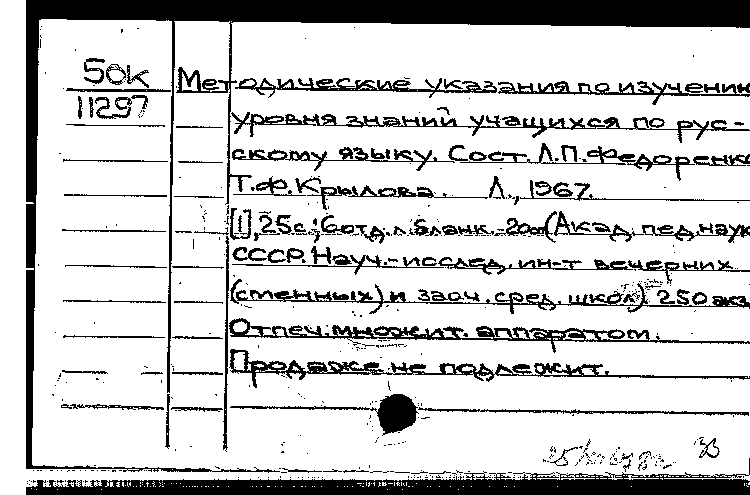 50к Методические указания по изучению
11297 уровня знаний учащихся по рус-
скому языку. Сост. Л.П.Федоренко
Т.Ф.Крылова. Л., 1967.
[1], 25с.; 6 отд. л. бланк. 20см (Акад. пед. наук
СССР. Науч.-исслед. ин-т вечерних
(сменных) и заоч. сред. школ). 250 экз.
Отпеч. множит. аппаратом.
Продаже не подлежит.